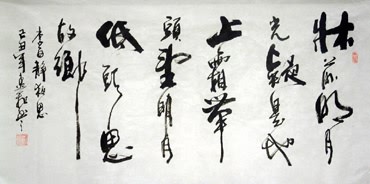 牀前明月
光疑是地
上霜舉
頭望明月
低頭思
故鄉
李白靜夜思
己丑年